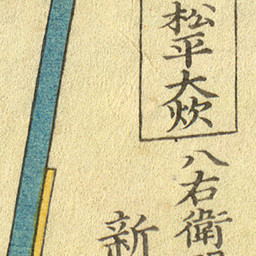 松平大炊
八右衛門
新